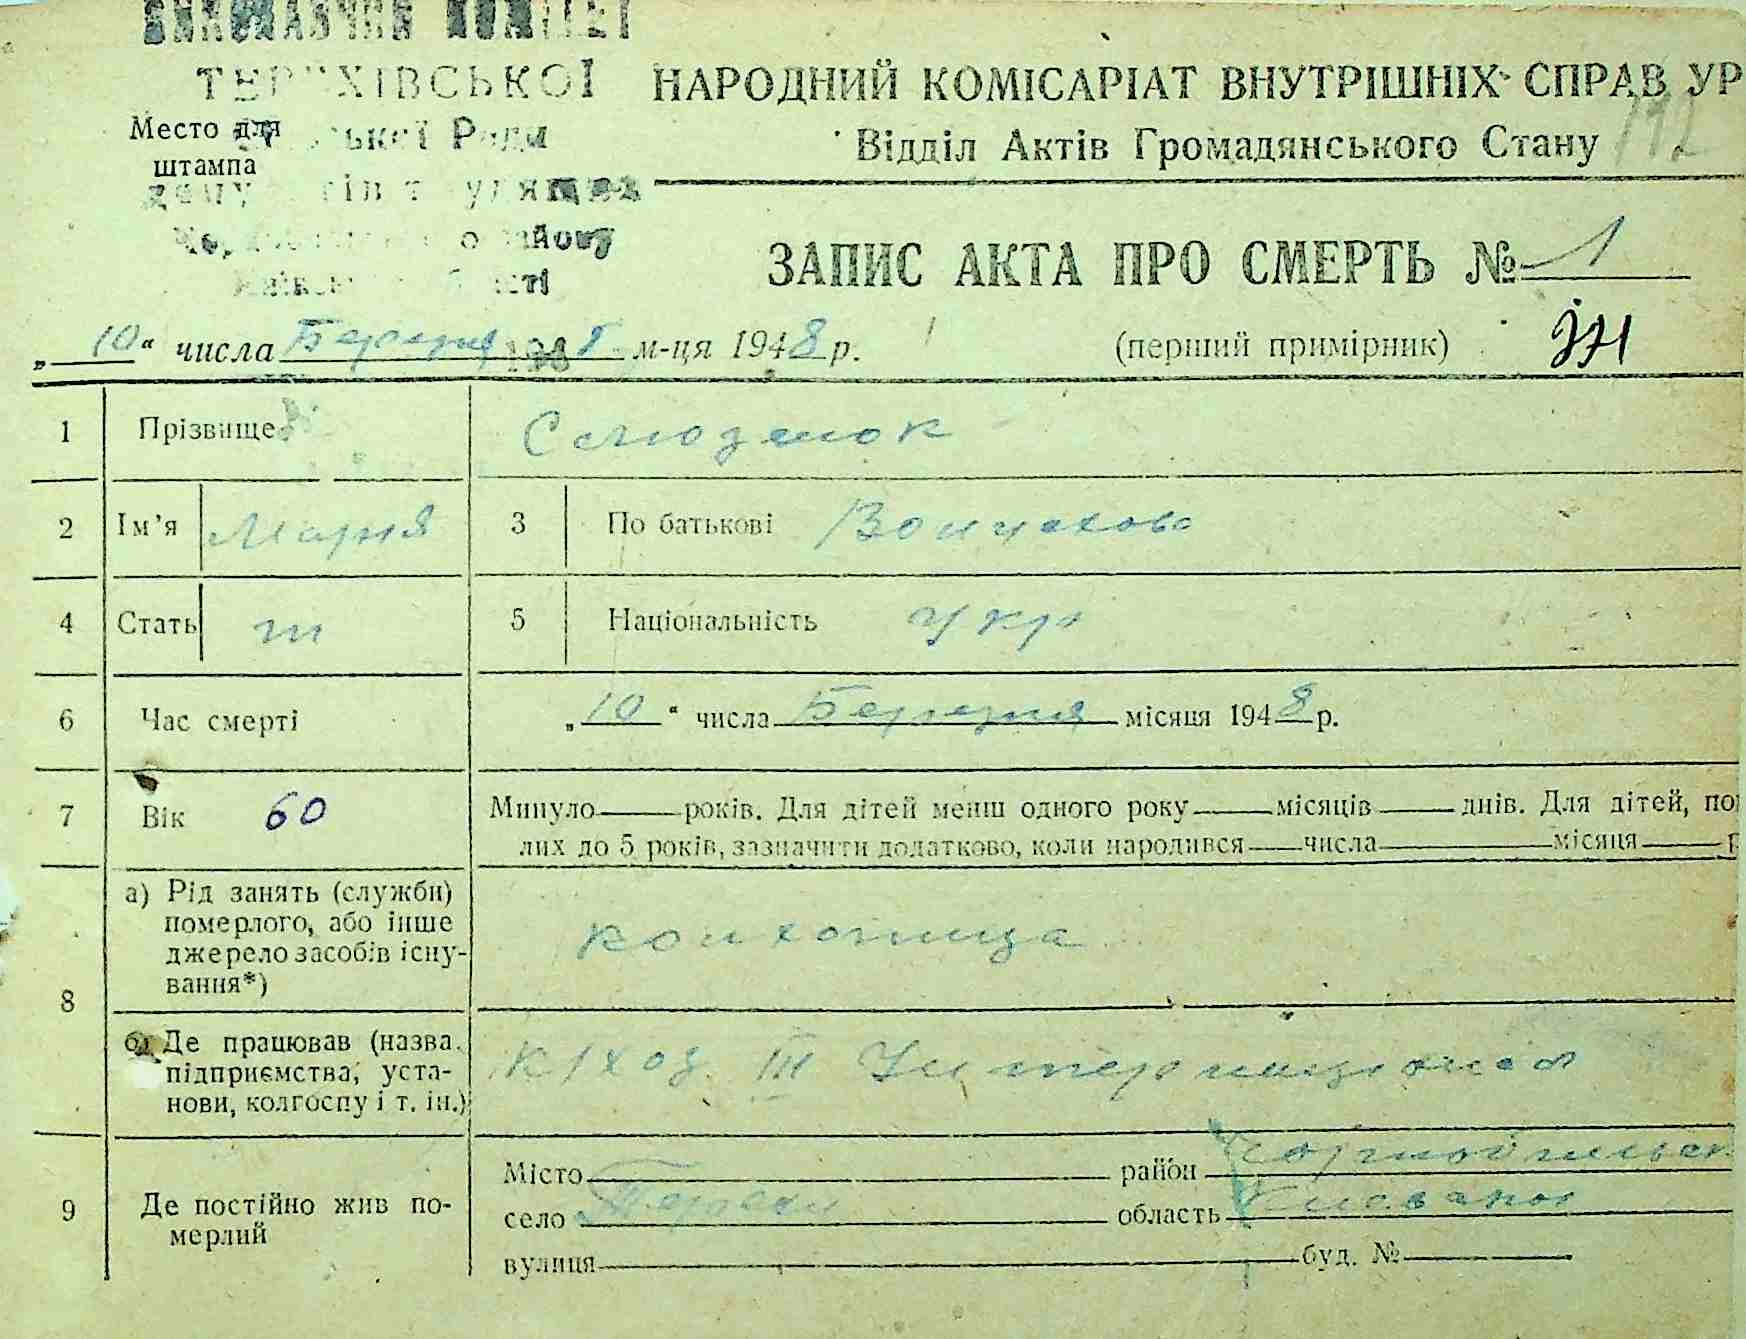 ВИКОНАВЧИЙ КОМІТЕТ
ТЕРЕХІВСЬКОЇ
НАРОДНИЙ КОМІСАРІАТ ВНУТРІШНІХ СПРАВ УР
Место для штампа
Ради
Відділ Актів Громадянського Стану
112
району
ЗАПИС АКТА ПРО СМЕРТЬ № 1
„10“ числа Березня м-ця 1948 р. (перший примірник)
1 Прізвище
2 Ім’я Марія 3 По батькові
4 Стать 5 Національність Укр
6 Час смерті „10“ числа Березня місяця 1948 р.
7 Вік 60 Минуло року років. Для дітей менш одного року місяців днів. Для дітей, по
лих до 5 років, зазначити додатково, коли народився числа місяця р
8 а) Рід занять (служби)
померлого, або інше
джерело засобів існу-
вання*)
колхозница
б) Де працював (назва
підприємства, уста-
нови, колгоспу і т. ін.)
к/хоз III Интернационал
9 Де постійно жив по-
мерлий
Місто район Чорнобильск
село Терехи область Киевская
вулиця буд. №